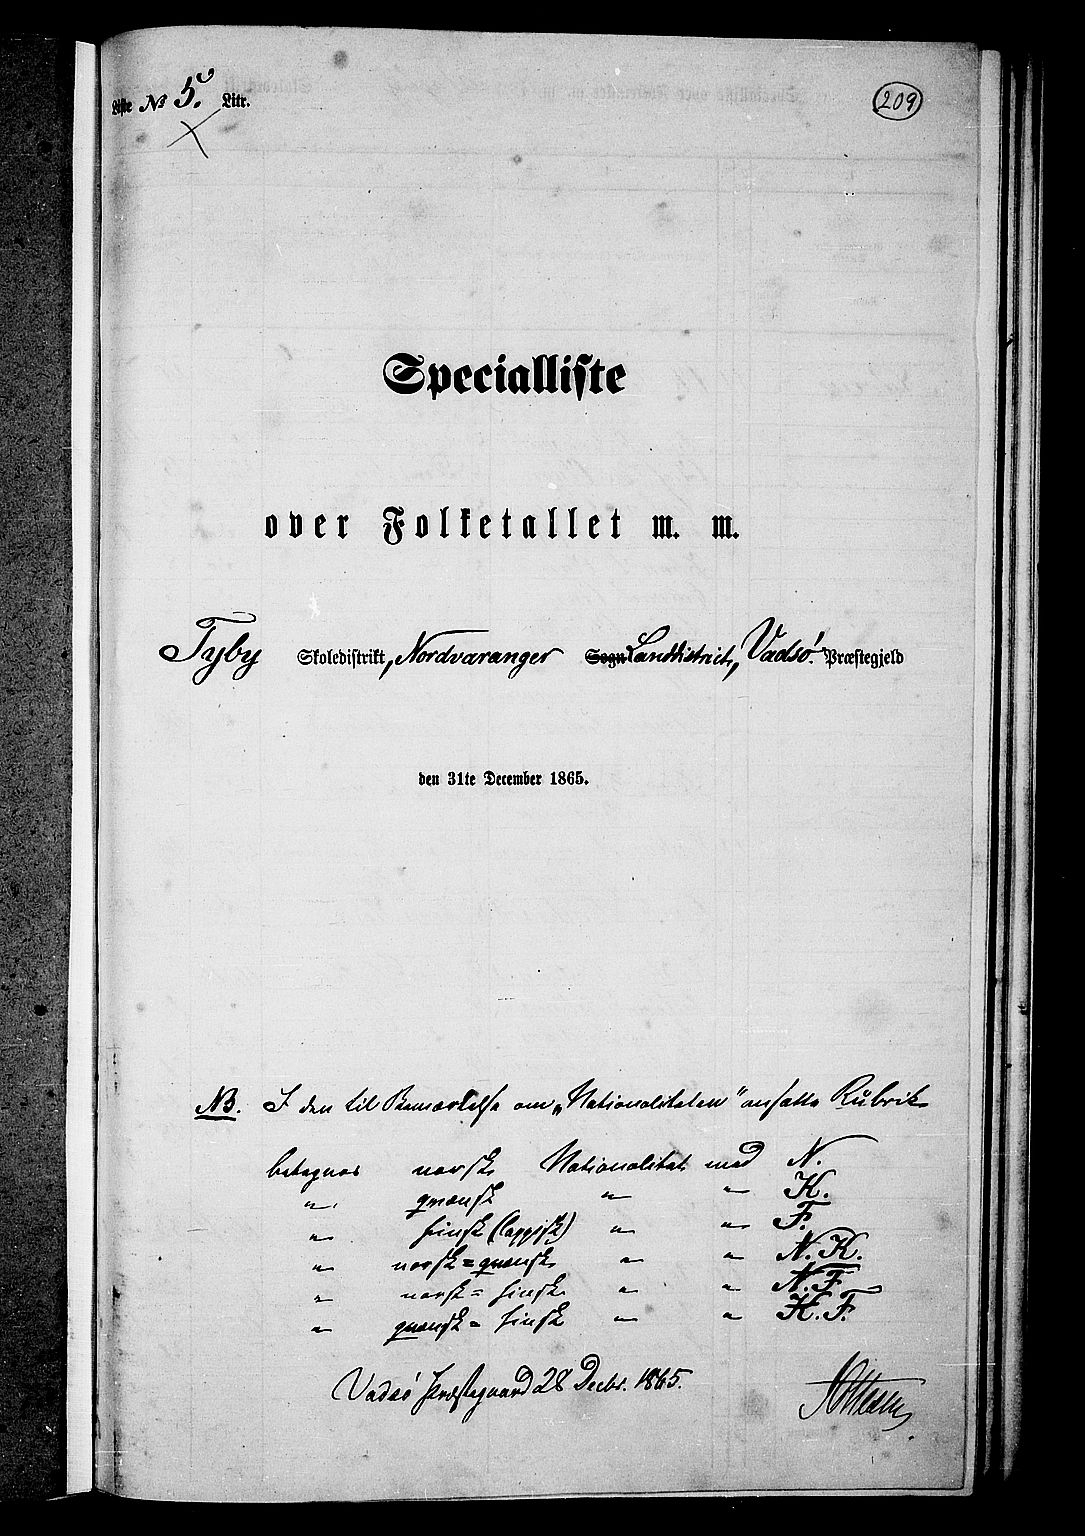 Liste No 5. Litr.
209
Specialliste
over Folketallet m. m.
Tyby Skoledistrikt, Nordvaranger Sogn Landdistrict, Vadsø Præstegjeld
den 31te December 1865.
NB. I den til Bemærkelse om „Nationaliteten" ansatte Rubrik
betegnes norsk Nationalitet med N.
" qvænsk " " K.
" finsk (lappisk) " " F.
" norsk=qvænsk " " N. K.
" norsk=finsk " " N. F.
" qvænsk=finsk " " K. F.
Vadsø Præstegaard 28 Decbr. 1865.